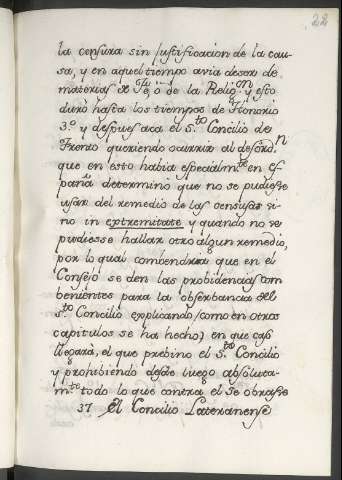 22
la censura sin justificacion de la cau-
sa, y en aquel tiempo avia deser de
materias de Fè, ò de la Relig.on y esto
durò hasta los tiempos de Honorio
3.º y despues acà el S.to Concilio de
Trento queriendo ocurrir al desord.n
que en esto habia especialm.te en Es-
paña determinò que no se pudiese
usar del remedio de las censuras si-
no in extremitate y quando no se
pudiesse hallar otro algun remedio,
por lo qual combendria que en el
Consejo se den las probidencias com-
benientes para la observancia del
S.to Concilio explicando (como en otros
capitulos se ha hecho) en que cass
llegarà, el que prebino el S.to Concilio
y prohibiendo desde luego absoluta-
m.te todo lo que contra el se obrasse
37 El Concilio Lateranense